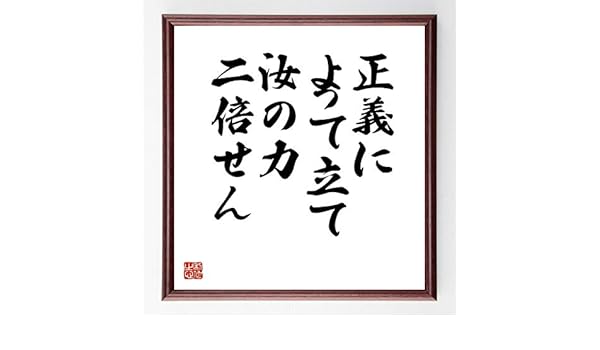 正義に
よって立て
汝の力
二倍せん